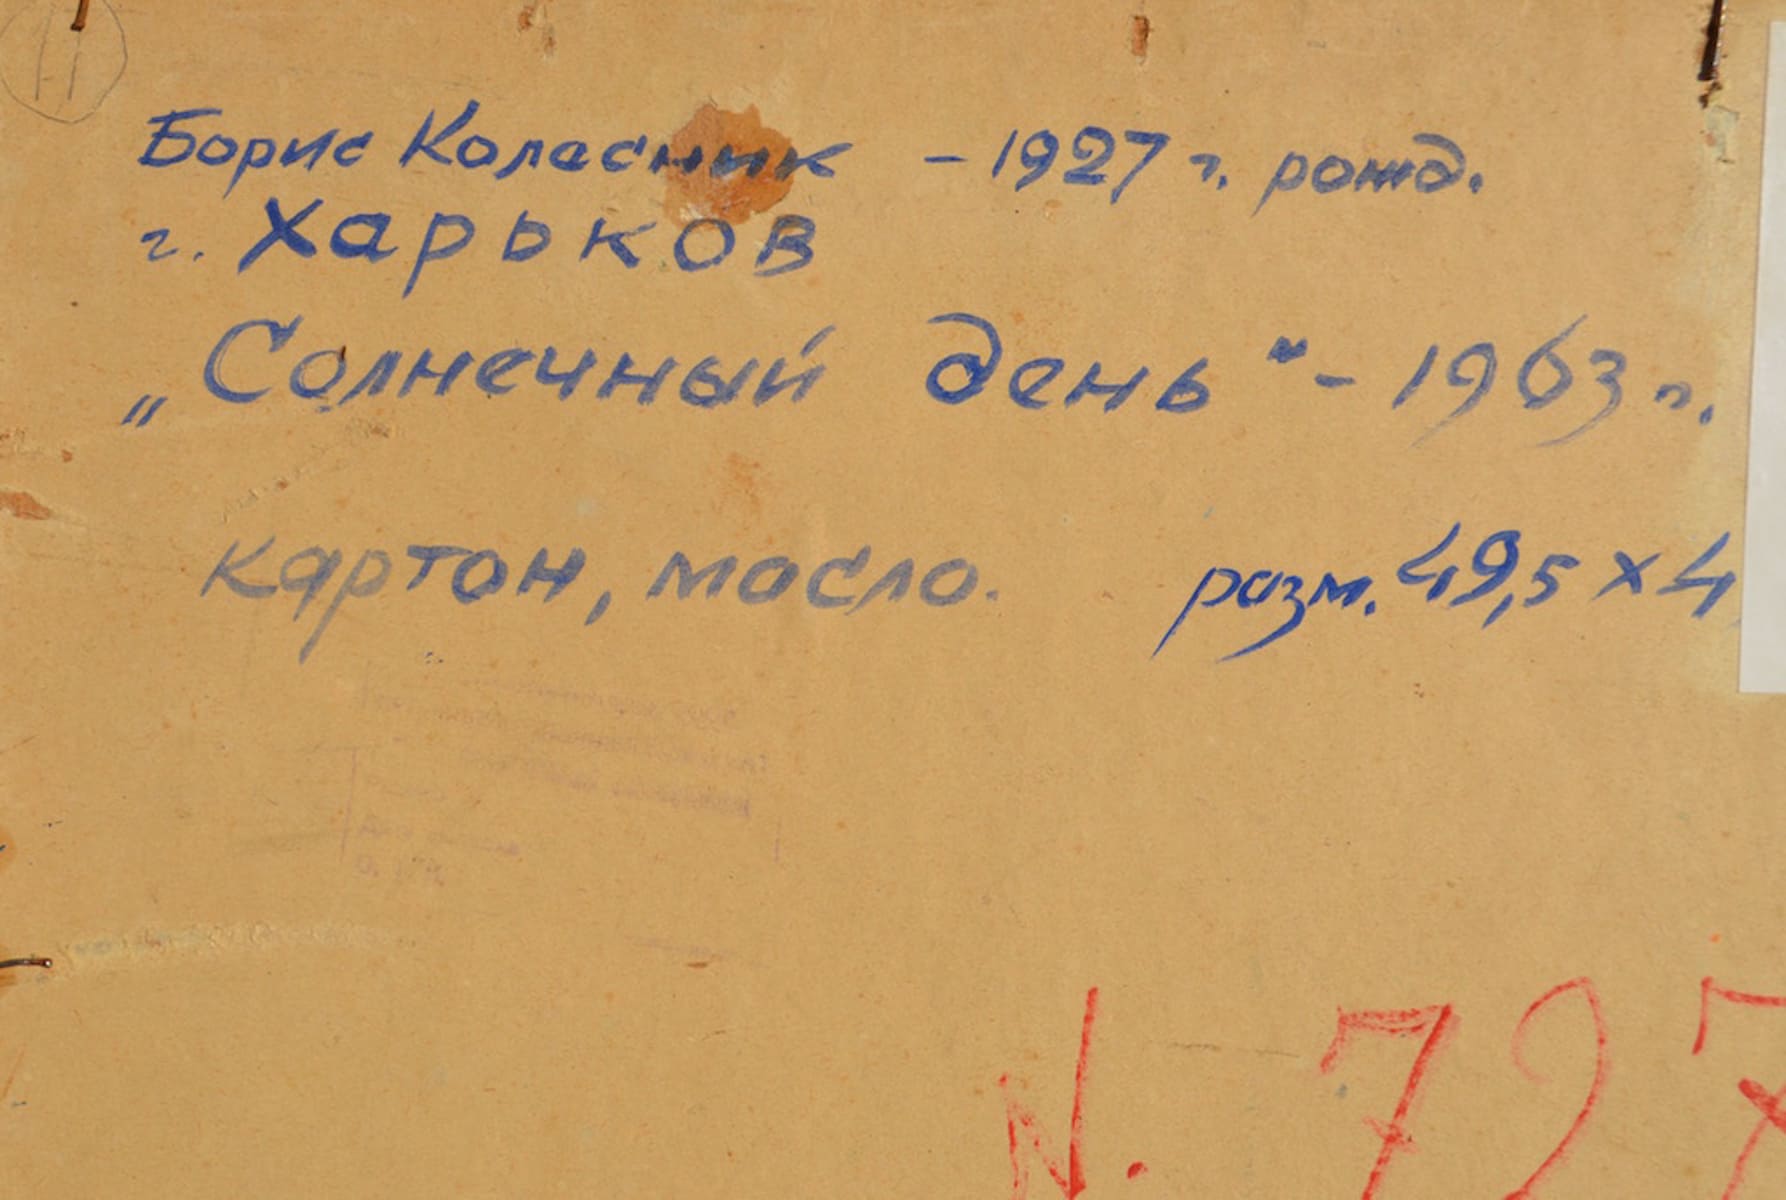 11
Борис Колесник - 1927 г. рожд.
г. Харьков
„Солнечный день" - 1963 г.
картон, масло. разм. 49,5 x 4
N. 727